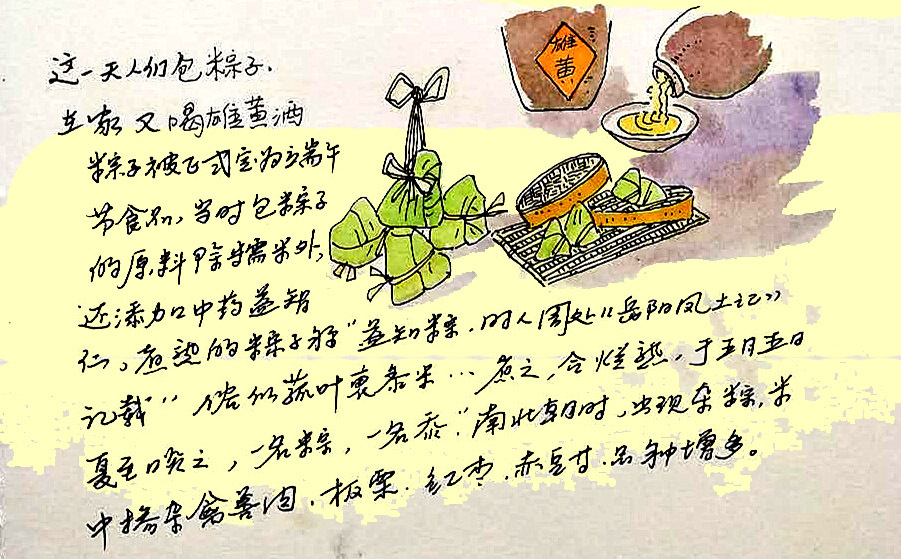 这一天人们包粽子.
在家又喝雄黄酒
粽子被正式定为端午
节食品,当时包粽子
的原料除糯米外,
还添加中药益智
仁,煮熟的粽子称“益知粽.时人周处《岳阳风土记》
记载“俗以菰叶裹黍米…煮之,合烂熟,于五月五日
夏至啖之,一名粽,一名黍”.南北朝时,出现杂粽.米
中掺杂禽兽肉.板栗.红枣.赤豆等.品种增多。
雄
黄